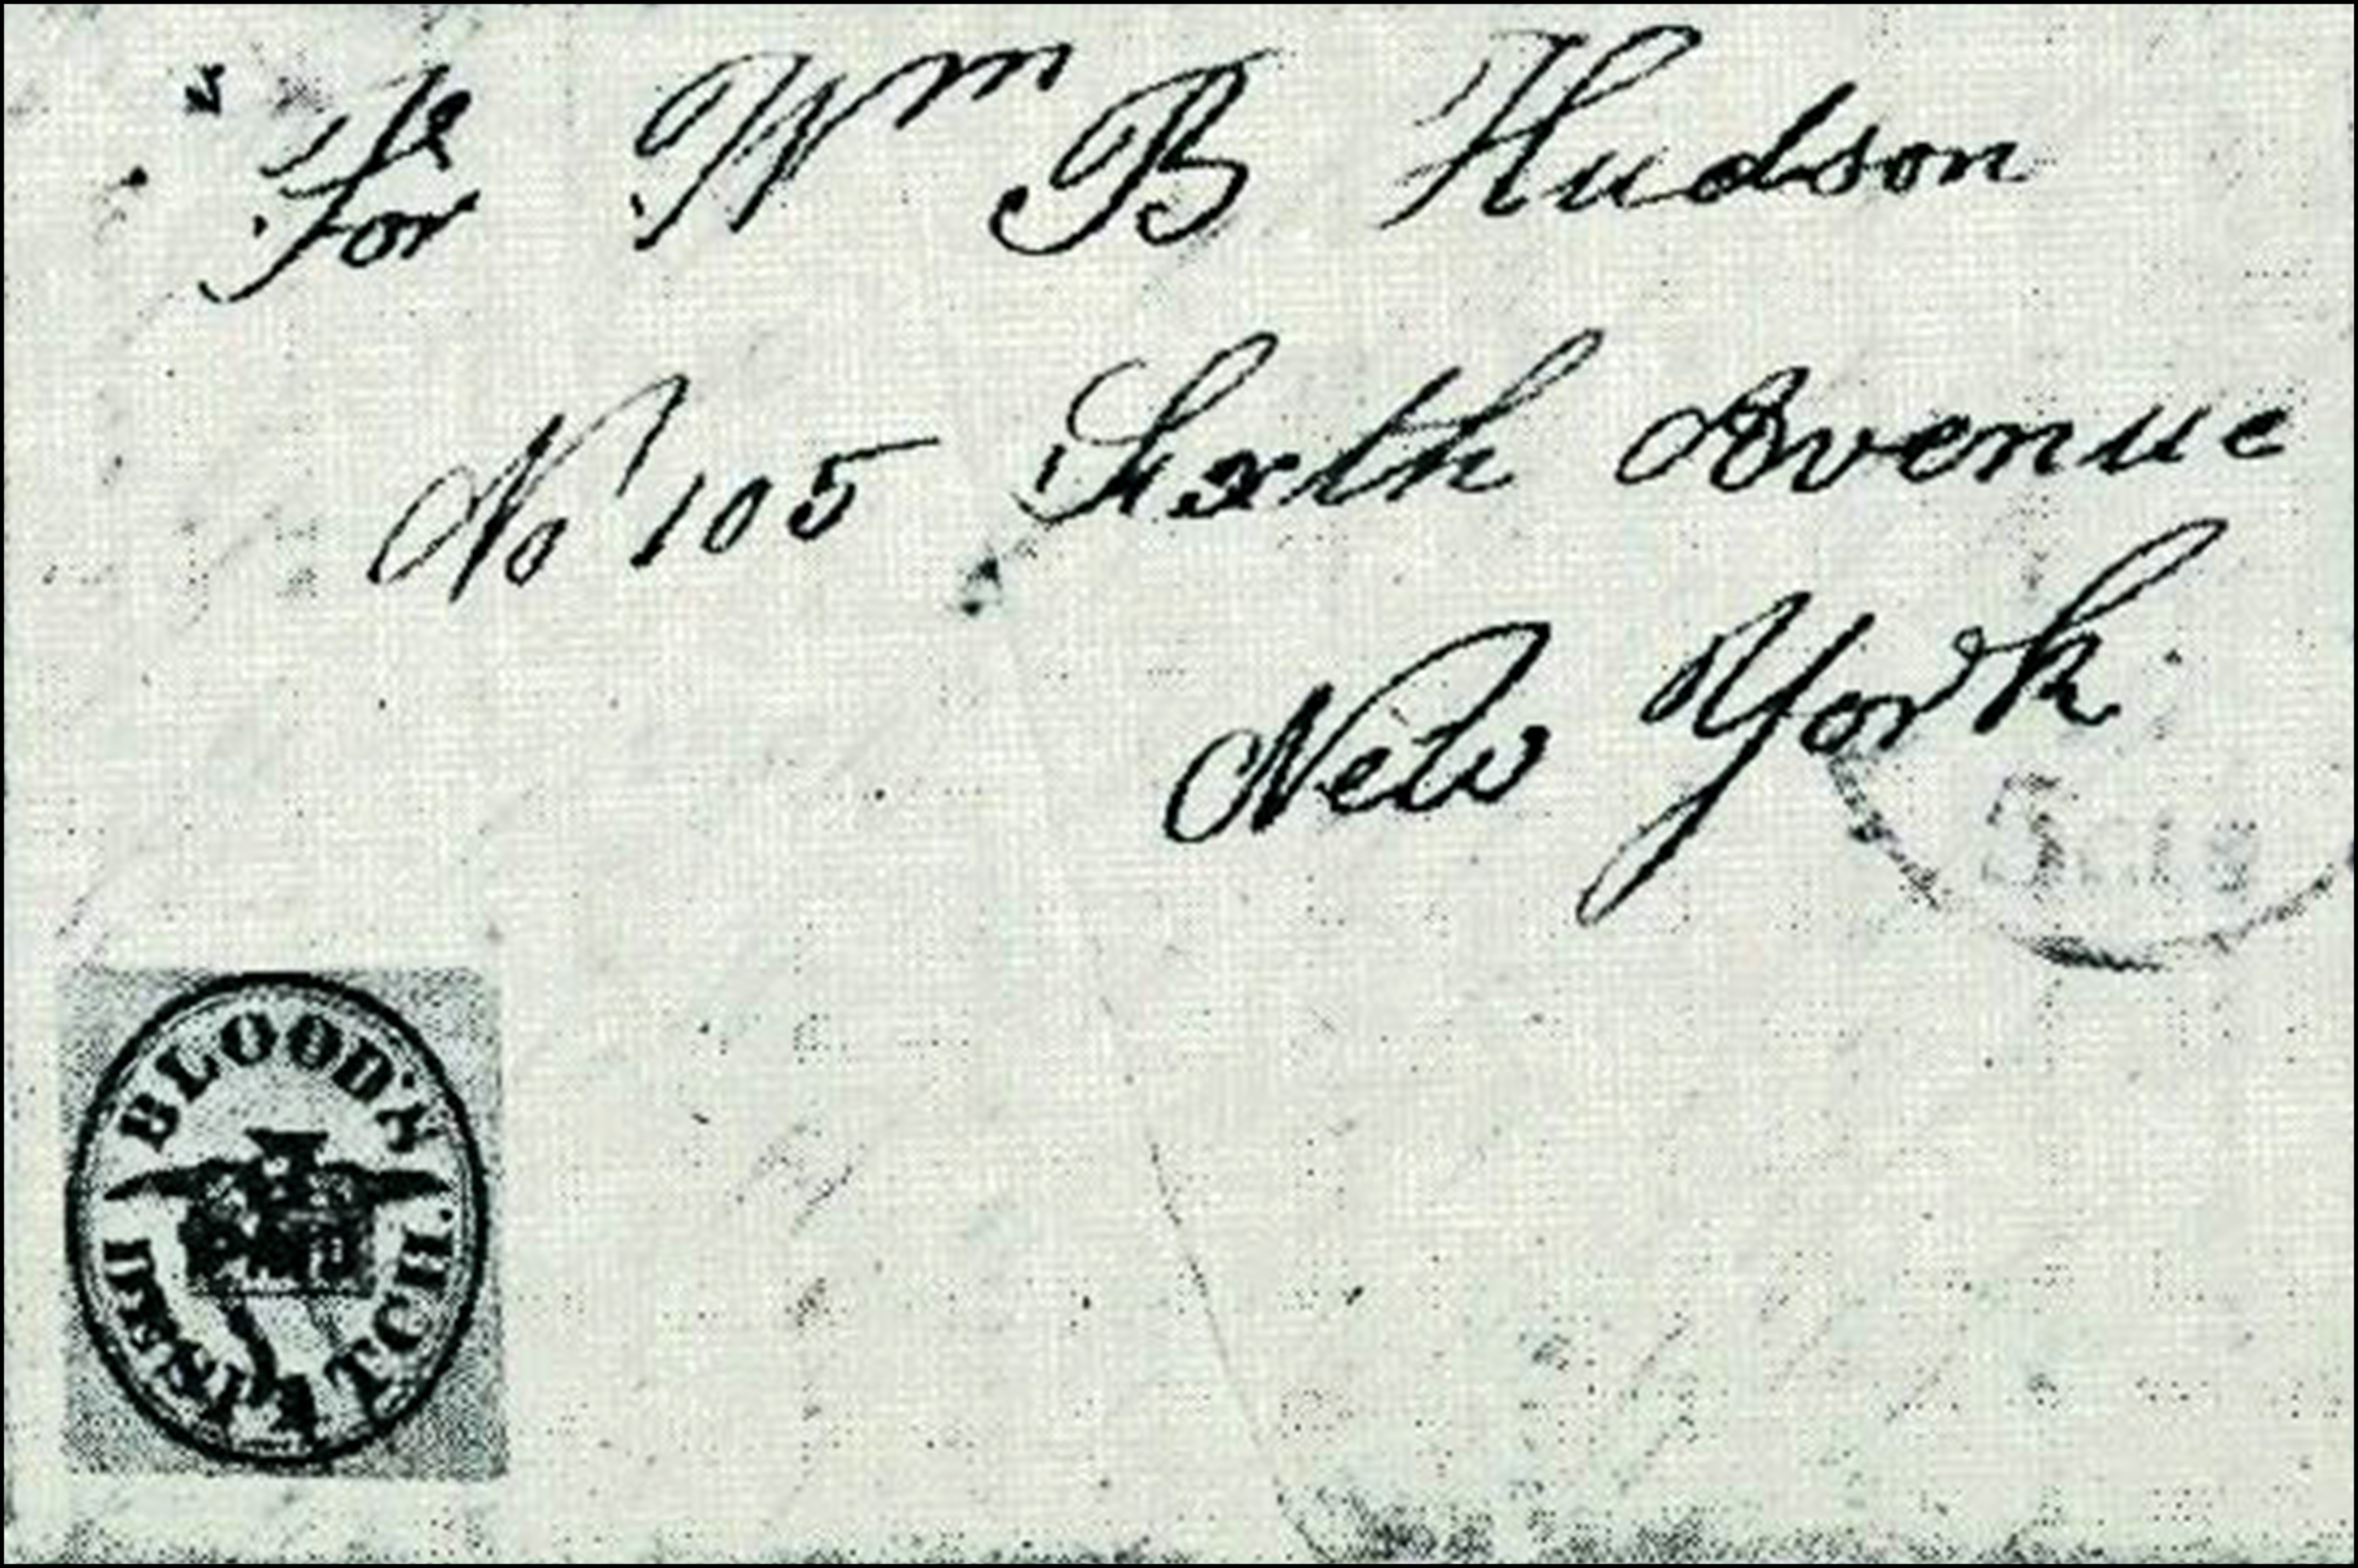 For Wm B Hudson
No 105 Sixth Avenue
New York
BLOOD'S